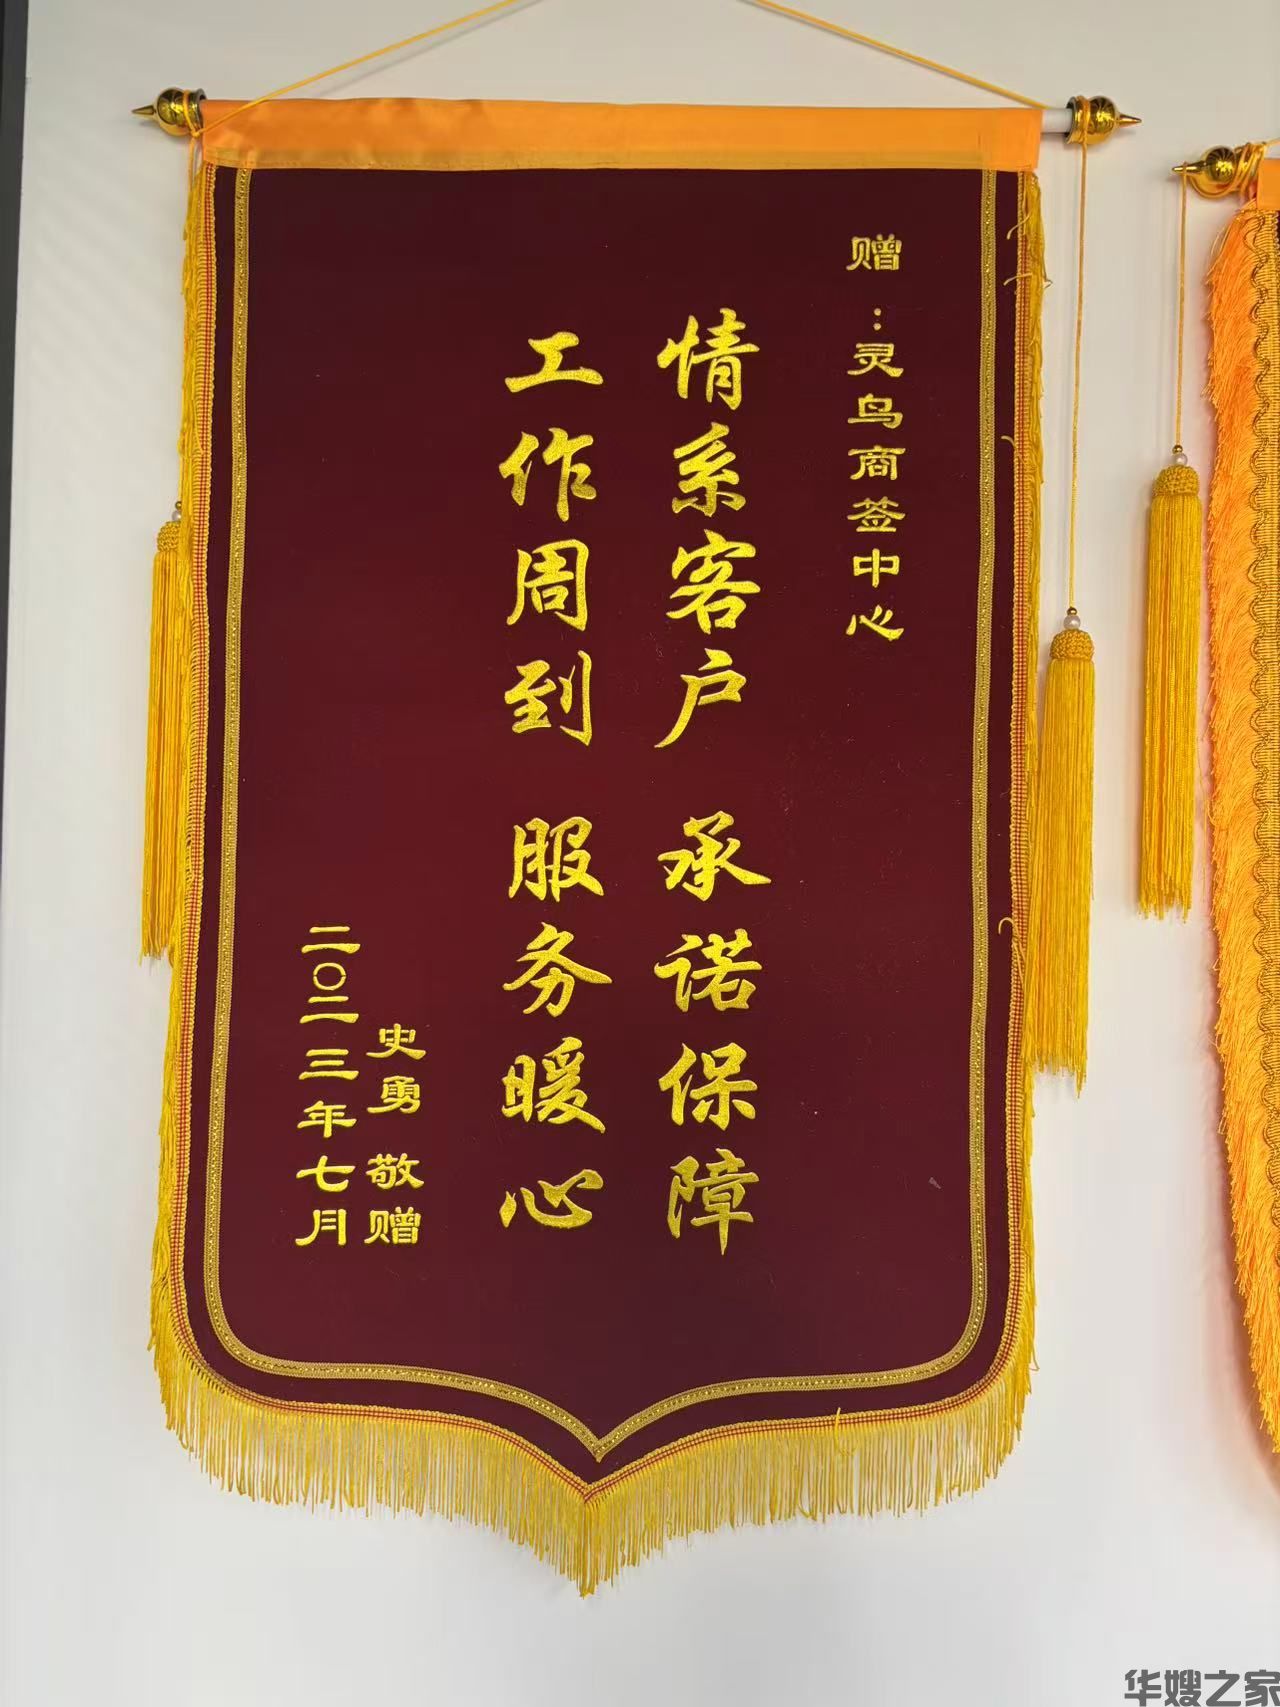 赠：灵鸟商签中心
情系客户 承诺保障
工作周到 服务暖心
史勇 敬赠
二〇二三年七月
华嫂之家